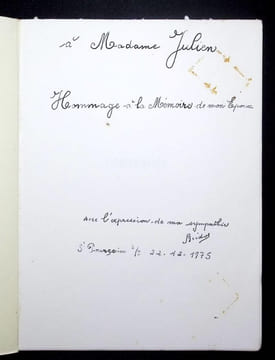 à Madame Julien
Hommage à la Mémoire de mon Epoux
avec l'expression de ma sympathie
St Pourçain s/s 22.12.1975